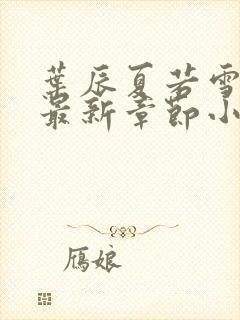 葉辰夏若雪
最新章節小
雁娘